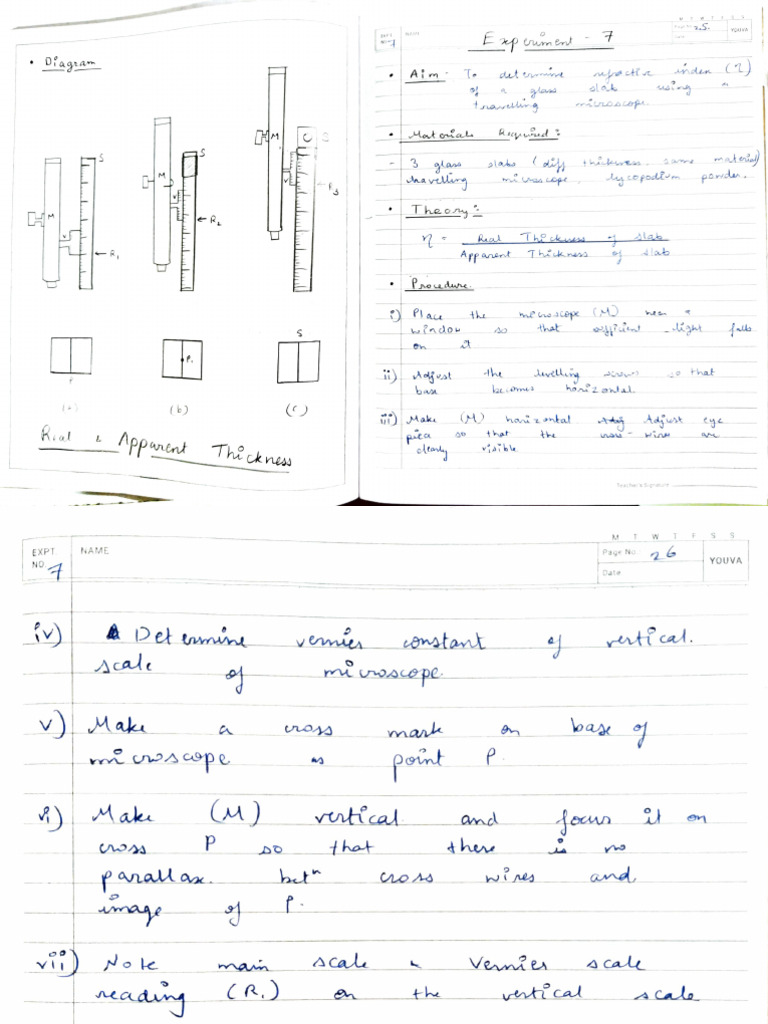 • Diagram
S
M
V
R₁
P
(a)
M
S
V
R₂
P₁
(b)
S
M
V
R₃
S
(c)
Real & Apparent Thickness
EXPT.
NO. 7
NAME
M T W T F S S
Page No. 25
Date
YOUVA
Experiment - 7
• Aim: To determine refractive index (η)
of a glass slab using a
travelling microscope.
• Materials Required:
- 3 glass slabs (diff thickness, same material)
travelling microscope, lycopodium powder.
• Theory:
η = Real Thickness of slab
Apparent Thickness of slab
• Procedure.
i) Place the microscope (M) near a
window so that sufficient light falls
on it
ii) Adjust the levelling screws so that
base becomes horizontal
iii) Make (M) horizontal Adjust eye
piece so that the cross-wires are
clearly visible
Teacher's Signature
EXPT.
NO. 7
NAME
M T W T F S S
Page No. 26
Date
YOUVA
iv) Determine vernier constant of vertical.
scale of microscope.
v) Make a cross mark on base of
microscope as point P.
vi) Make (M) vertical and focus it on
cross P so that there is no
parallax. betⁿ cross wires and
image of P.
vii) Note main scale & Vernier scale
reading (R₁) on the vertical scale